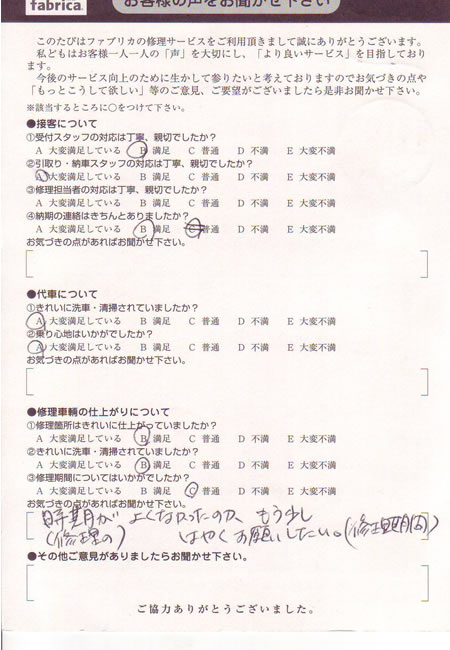 fabrica.
お客様の声をお聞かせ下さい
このたびはファブリカの修理サービスをご利用頂きまして誠にありがとうございます。
私どもはお客様一人一人の「声」を大切にし、「より良いサービス」を目指しており
ます。
今後のサービス向上のために生かして参りたいと考えておりますのでお気づきの点や
「もっとこうして欲しい」等のご意見、ご要望がございましたら是非お聞かせ下さい。
※該当するところに○をつけて下さい。
●接客について
①受付スタッフの対応は丁寧、親切でしたか？
A 大変満足している B 満足 C 普通 D 不満 E 大変不満
②引取り・納車スタッフの対応は丁寧、親切でしたか？
A 大変満足している B 満足 C 普通 D 不満 E 大変不満
③修理担当者の対応は丁寧、親切でしたか？
A 大変満足している B 満足 C 普通 D 不満 E 大変不満
④納期の連絡はきちんとありましたか？
A 大変満足している B 満足 C 普通 D 不満 E 大変不満
お気づきの点があればお聞かせ下さい。
●代車について
①きれいに洗車・清掃されていましたか？
A 大変満足している B 満足 C 普通 D 不満 E 大変不満
②乗り心地はいかがでしたか？
A 大変満足している B 満足 C 普通 D 不満 E 大変不満
お気づきの点があればお聞かせ下さい。
●修理車輌の仕上がりについて
①修理箇所はきれいに仕上がっていましたか？
A 大変満足している B 満足 C 普通 D 不満 E 大変不満
②きれいに洗車・清掃されていましたか？
A 大変満足している B 満足 C 普通 D 不満 E 大変不満
③修理期間についてはいかがでしたか？
A 大変満足している B 満足 C 普通 D 不満 E 大変不満
お気づきの点があればお聞かせ下さい。
時期が よくなかったのか、もう少し
(修理の) はやくお願いしたい。(修理期間)
●その他ご意見がありましたらお聞かせ下さい。
ご協力ありがとうございました。